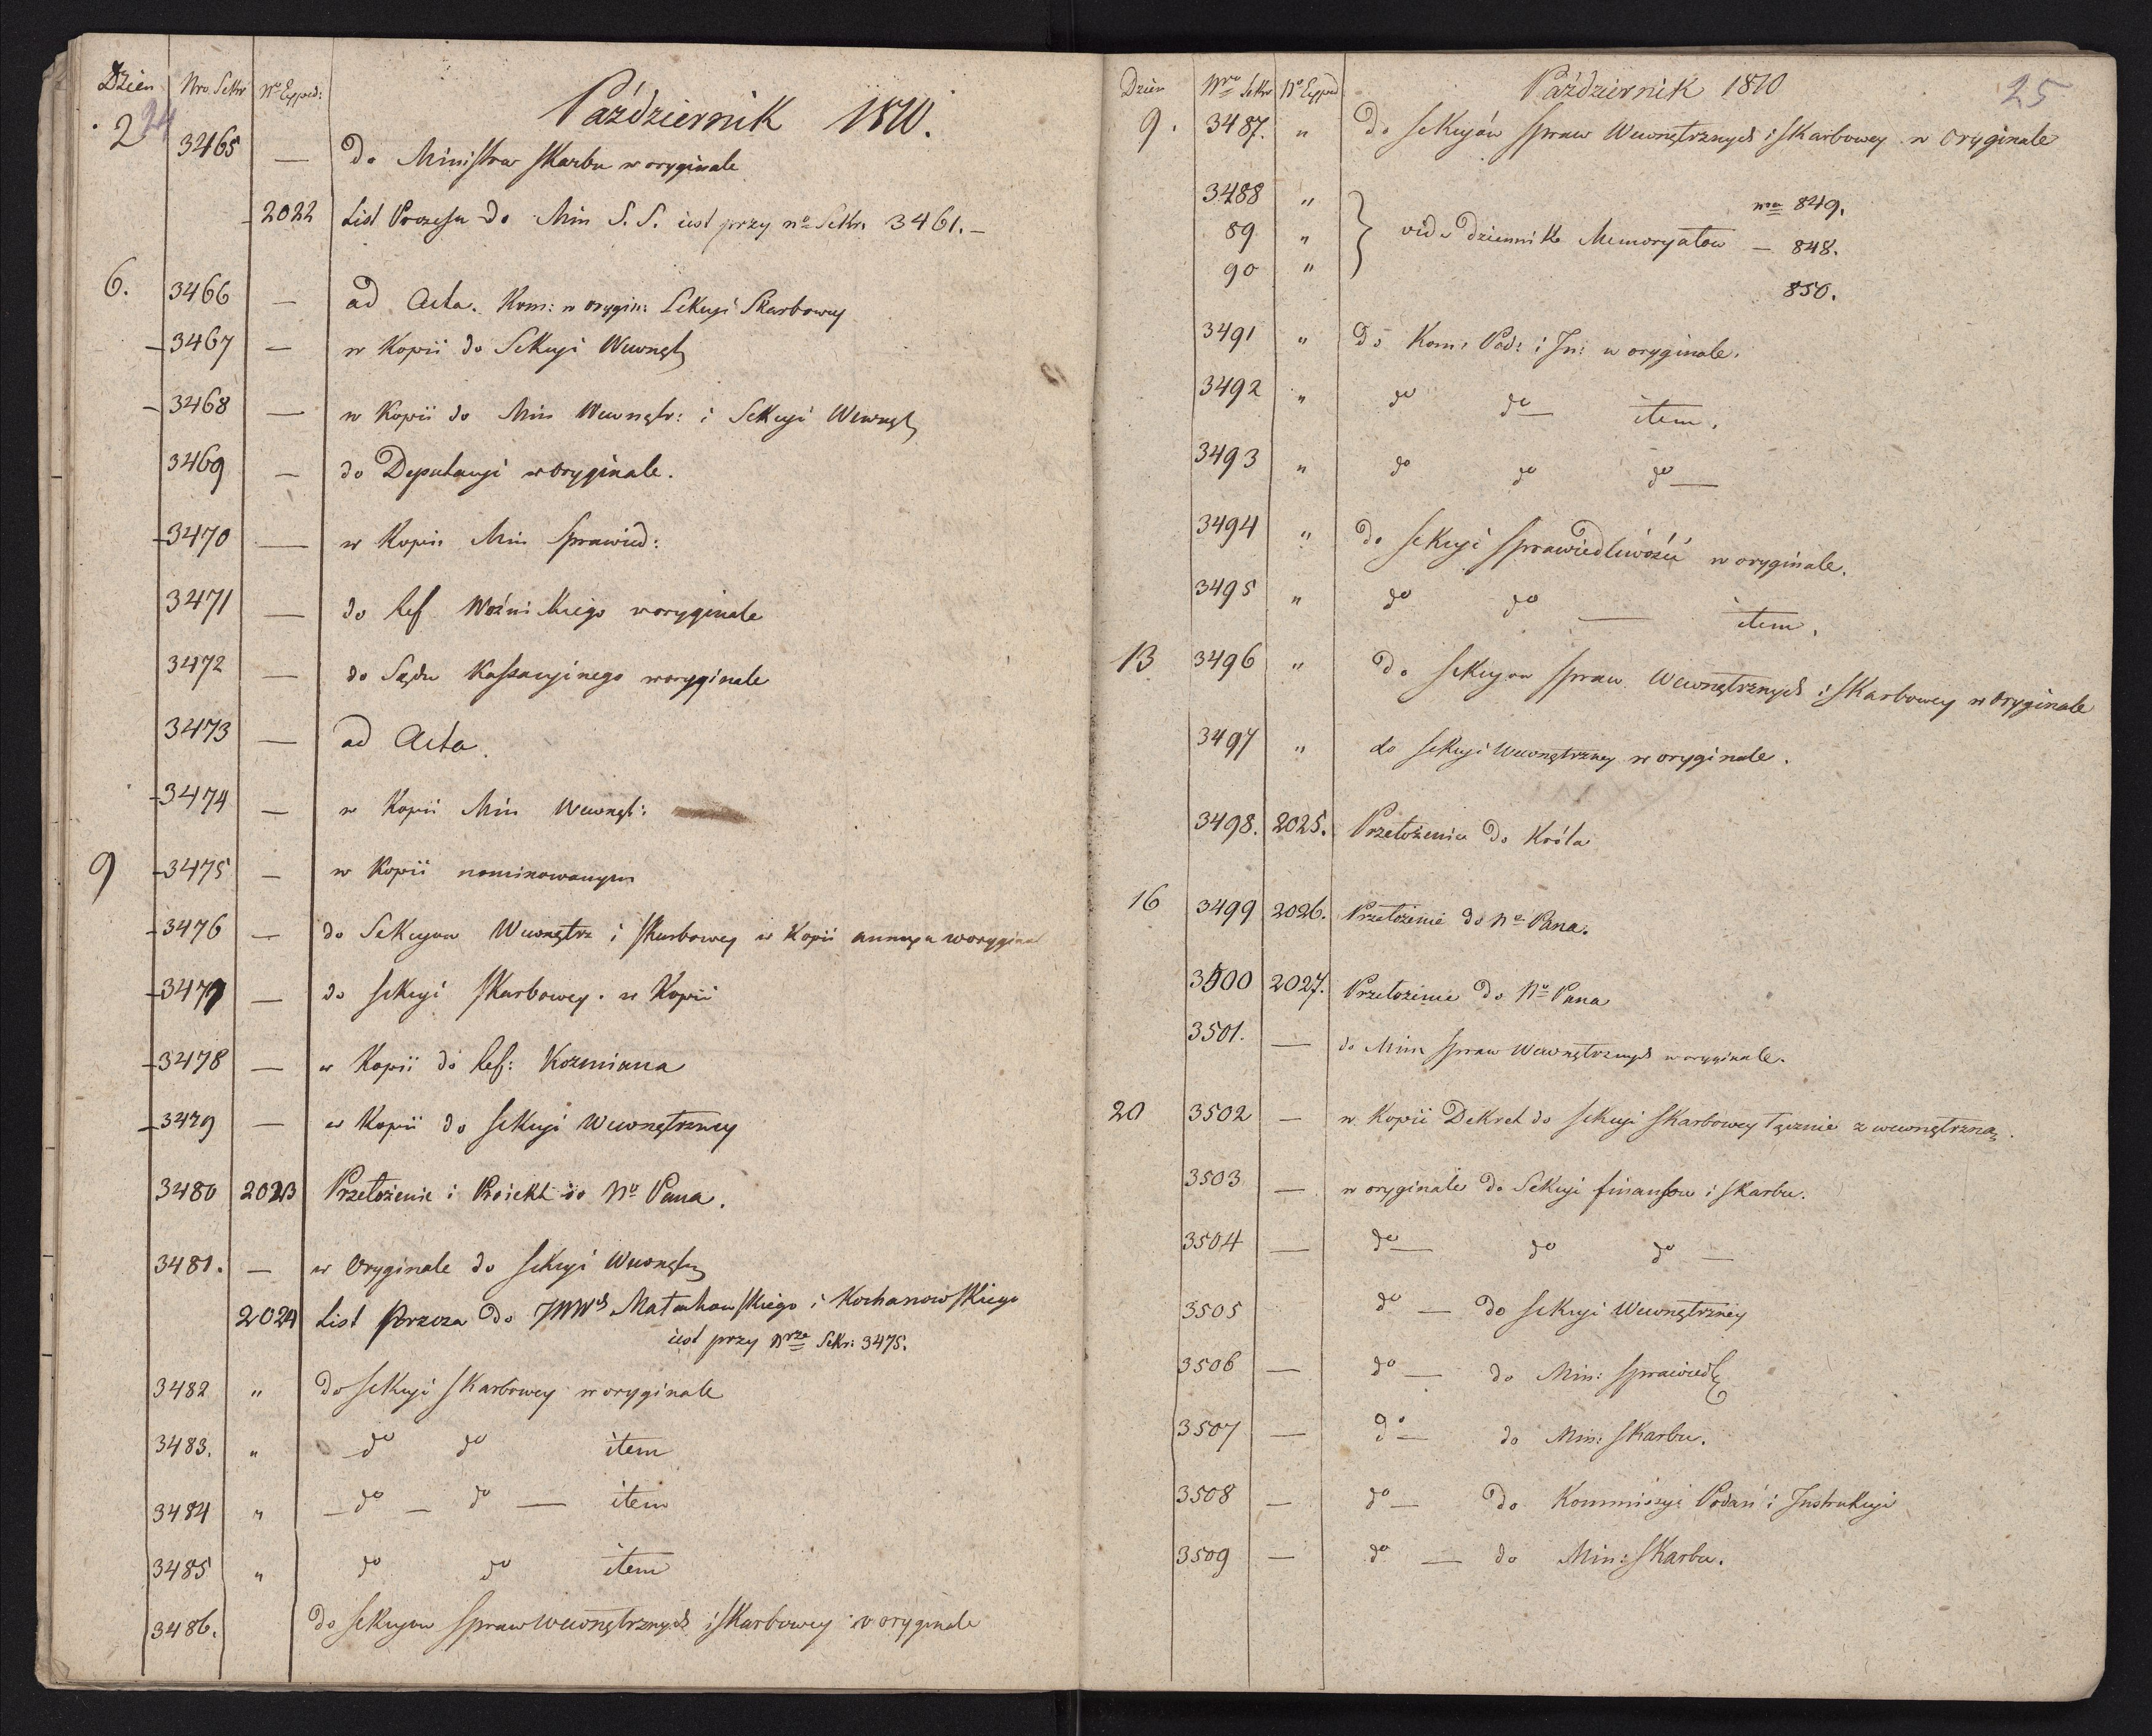 Dzien Nro Sekr No Exped:
24
Październik 1810.
2 3465 — Do Ministra Skarbu w oryginale
— 2022 List Prezesa do Min S. S. iest przy no Sekr. 3461. —
6. 3466 — ad Acta. Kom: w orygin: Sekcyi Skarbowey
— 3467 — w Kopii do Sekcyi Wewnętr
— 3468 — w Kopii do Min Wewnętr: i Sekcyi Wewnętr
3469 — do Deputacyi w oryginale.
— 3470 — w Kopii Min Sprawied:
3471 — do Ref Woźnickiego w oryginale
3472 — do Sądu Kassacyinego w oryginale
3473 — ad Acta.
— 3474 — w Kopii Min Wewnęt:
9 — 3475 — w Kopii nominowanym
— 3476 — do Sekcyow Wewnętrz i skarbowey w Kopii annexa w oryginal
— 3477 — do sekcyi skarbowey. w Kopii
— 3478 — w Kopii do Ref: Kozmiana
— 3479 — w Kopii do sekcyi Wewnętrzney
3480 2023 Przełożenie i Proiekt do No Pana.
3481. — w Oryginale do sekcyi Wewnętr
2024 List Prezesa do JWWch Małachowskiego i Kochanowskiego
iest przy Nrze Sekr: 3475.
3482 " do sekcyi skarbowey w oryginale
3483. " do do item
3484 " — do — do — item
3485 " do do item
3486. do sekcyow spraw wewnętrznych i skarbowey w oryginale
Dzien Nro Sekr No Exped
Październik 1810
25
9. 3487. " Do sekcyów spraw Wewnętrznych i skarbowey w Oryginale
3488 " nro 849.
89 " } vide dziennik Memoryałow — 848.
90 " 850.
3491 " Do Kom: Pod: i In: w oryginale.
3492 " do do — item.
3493 " do do do —
3494 " do sekcyi sprawiedliwości w oryginale.
3495 " do do — item.
13 3496 " Do sekcyow spraw Wewnętrznych i skarbowey w oryginale
3497 " do sekcyi Wewnętrzney w oryginale.
3498. 2025. Przełożenie do Króla
16 3499 2026. Przełożenie do No Pana.
3500 2027. Przełożenie do No Pana
3501. — do Min spraw Wewnętrznych w oryginale.
20 3502 — w Kopii Dekret do sekcyi skarbowey łącznie z wewnętrzną.
3503 — w oryginale do Sekcyi finansow i skarbu.
3504 — do — do do —
3505 do — do sekcyi Wewnętrzney
3506 — do — do Min: sprawiedl
3507 — do — do Min: skarbu.
3508 — do — do Kommissyi Podań i Instrukcyi
3509 — do — do Min: skarbu.